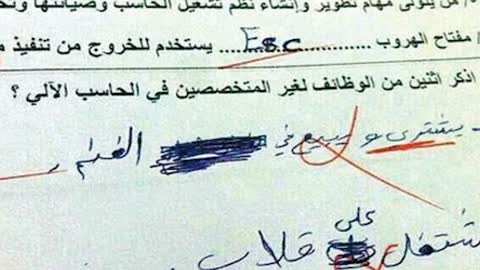 من يتولى مهام تطوير وإنشاء نظم تشغيل الحاسب وصيانتها
/ مفتاح الهروب ......Esc...... يستخدم للخروج من تنفيذ
اذكر اثنين من الوظائف لغير المتخصصين في الحاسب الآلي ؟
- يشتري و يبيع في الغنم
شتغل على قلاب